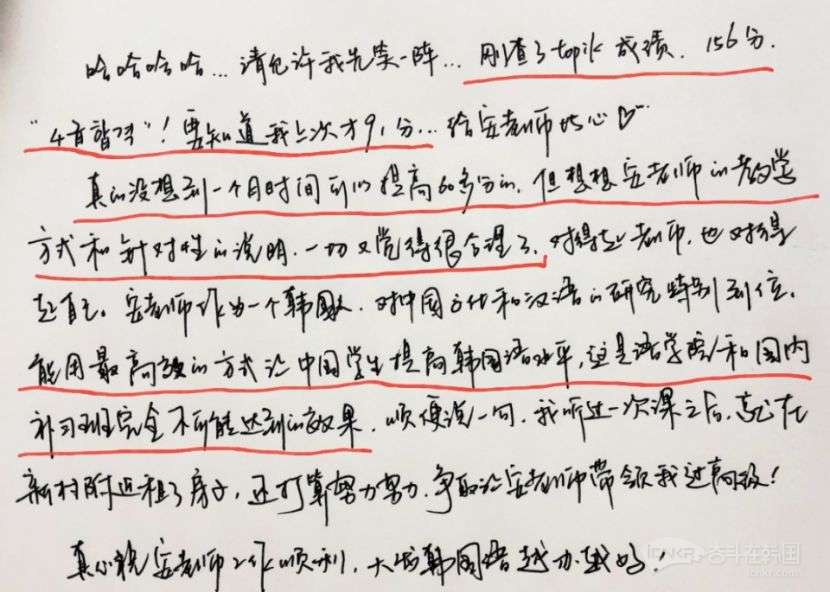 哈哈哈哈...请允许我先笑一阵...刚查了topik成绩.156分.
"4급합격"!要知道我上次才91分...给安老师比心♡~
真的没想到一个月时间可以提高60多分的,但想想安老师的教学
方式和针对性的说明.一切又觉得很合理了.对得起老师,也对得
起自己。安老师作为一个韩国人.对中国文化和汉语的研究特别到位.
能用最高效的方式让中国学生提高韩国语水平,这是语学院/和国内
补习班完全不可能达到的效果.顺便说一句.我听过一次课之后,就在
新村附近租了房子,还打算努力努力.争取让安老师带领我进高级!
真心祝安老师工作顺利,大发韩国语越办越好!
奋斗在韩国
icnkr.com